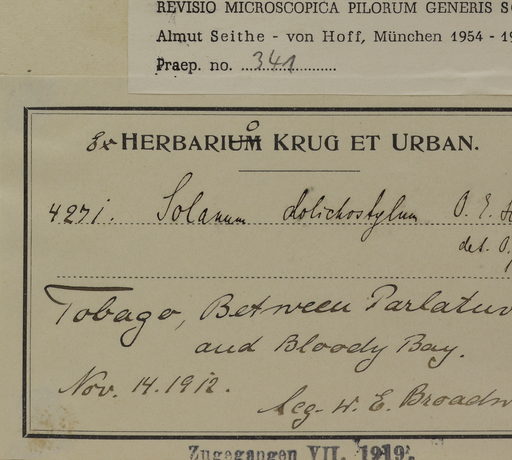 REVISIO MICROSCOPICA PILORUM GENERIS
Almut Seithe - von Hoff, München 1954 -
Praep. no. 341
Ex HERBARIUM O KRUG ET URBAN.
4271. Solanum dolichostylum O. E.
det. O.
Tobago, Between Parlatuv
and Bloody Bay.
Nov. 14. 1912.
leg. W. E. Broadw
Zugegangen VII. 1919.